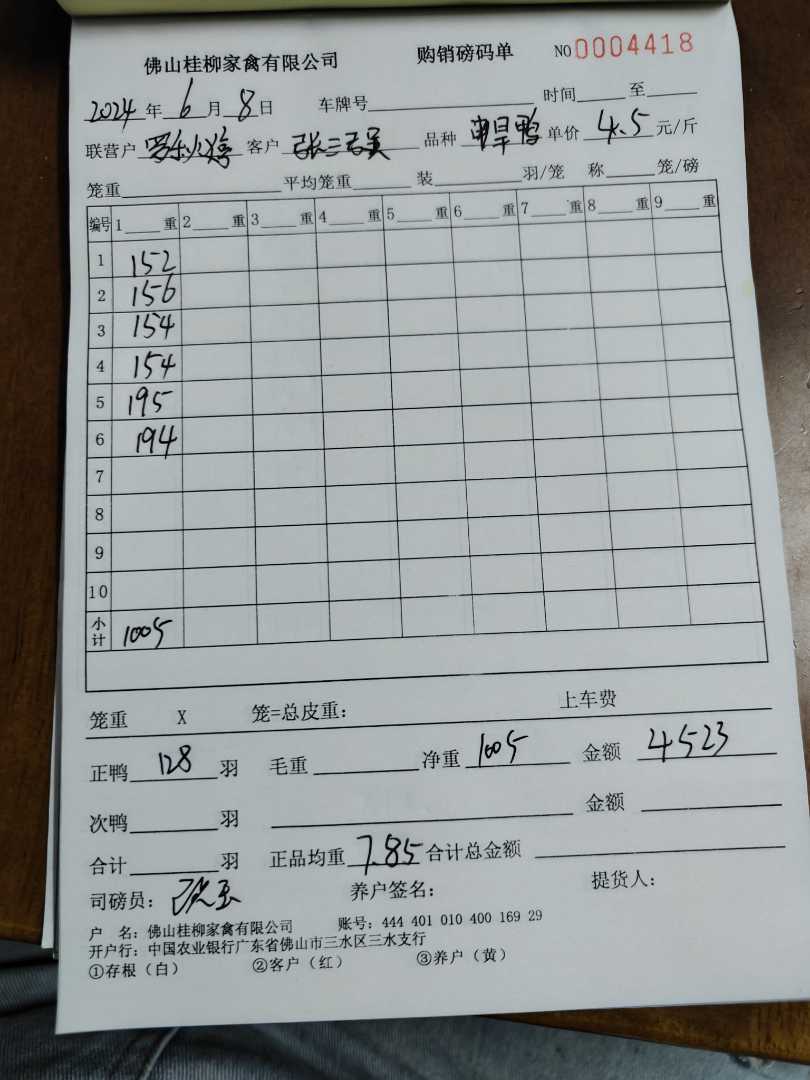 佛山桂柳家禽有限公司 购销磅码单 NO 0004418
2024 年 6 月 8 日 车牌号 时间 至
联营户 客户 张三 品种 旱鸭 单价 4.5 元/斤
笼重 平均笼重 装 羽/笼 称 笼/磅
编号 1 重 2 重 3 重 4 重 5 重 6 重 7 重 8 重 9 重
1 152
2 156
3 154
4 154
5 195
6 194
7
8
9
10
小计 1005
笼重 X 笼=总皮重: 上车费
正鸭 128 羽 毛重 净重 1005 金额 4523
次鸭 羽 金额
合计 羽 正品均重 7.85 合计总金额
司磅员: 养户签名: 提货人:
户 名: 佛山桂柳家禽有限公司 账号: 444 401 010 400 169 29
开户行: 中国农业银行广东省佛山市三水区三水支行
①存根(白) ②客户(红) ③养户(黄)